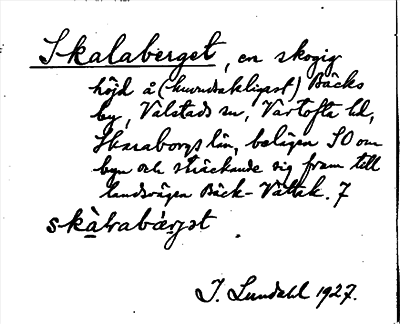 Skalaberget, en skogig
höjd å (huvudsakligast) Bäcks
by, Valstads sn, Vartofta hd,
Skaraborgs län, belägen SO om
byn och sträckande sig fram till
landsvägen Bäck-Vättak. 7
skàlrabǽrjət
J. Lundahl 1927.